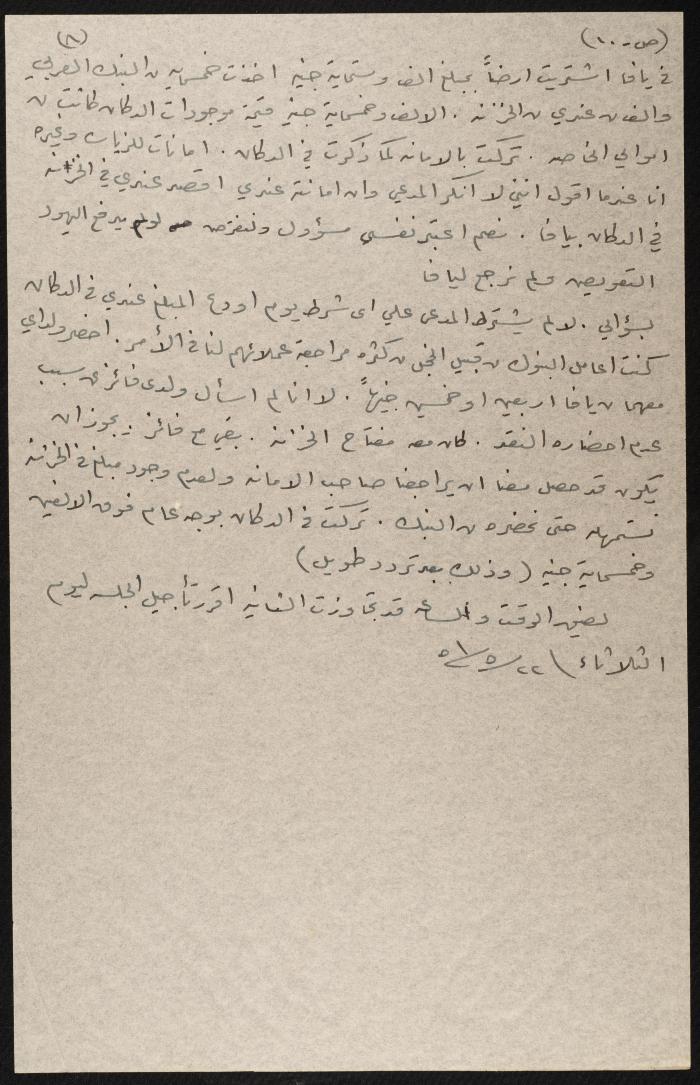 (ص - ١٠٠) (٨)
في يافا اشتريت ارضاً بمبلغ الف وستماية جنيه اخذت خمسمايه من البنك العربي
والف من عندي من الخزنه . الالف وخمسماية جنيه قيمة موجودات الدكان كانت من
اموالي الخاصه . تركت بالامانه كما ذكرت في الدكان . امانات للزيات وغيره
انا عندما اقول انني لا انكر المدعي وان امانته عندي اقصد عندي في الخزانه
في الدكان بيافا . نعم اعتبر نفسي مسؤول ولنفرض لو لم يدفع اليهود
التعويض ولم نرجع ليافا
بسؤالي . لا لم يشترط المدعي علي اي شرط يوم اودع المبلغ عندي في الدكان
كنت اعامل البنوك من قبيل من كثرة مراجعة عملائهم لنا في الأمر . احضر ولداي
معهما من يافا اربعين او خمسين جنيهاً . لا انا لم اسأل ولدي فائز عن سبب
عدم احضاره النقد . كان معه مفتاح الخزانه . بقي مع فائز . يجوز ان
يكون قد حصل معنا ان يراجعنا صاحب الامانه ولعدم وجود مبلغ في الخزانه
نستمهله حتى نحضره من البنك . تركت في الدكان بوجه عام فوق الالفين
وخمسماية جنيه (وذلك بعد تردد طويل)
لضيق الوقت والساعه قد تجاوزت الثانيه اقرر تأجيل الجلسه ليوم
الثلاثاء ٢٢/٥/٥١